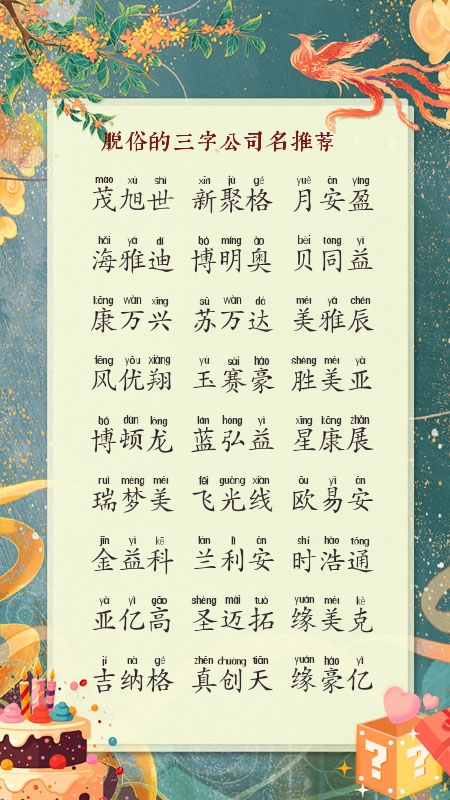 脱俗的三字公司名推荐
mào xù shì xīn jù gé yuè ān yíng
茂旭世 新聚格 月安盈
hǎi yǎ dí bó míng ào bèi tóng yì
海雅迪 博明奥 贝同益
kāng wàn xīng sū wàn dá měi yǎ chén
康万兴 苏万达 美雅辰
fēng yōu xiáng yù sài háo shèng měi yà
风优翔 玉赛豪 胜美亚
bó dùn lóng lán hóng yì xīng kāng zhǎn
博顿龙 蓝弘益 星康展
ruì mèng měi fēi guāng xiàn ōu yì ān
瑞梦美 飞光线 欧易安
jīn yì kē lán lì ān shí hào tōng
金益科 兰利安 时浩通
yà yì gāo shèng mài tuò yuán měi kè
亚亿高 圣迈拓 缘美克
jí nà gé zhēn chuàng tiān yuán háo yì
吉纳格 真创天 缘豪亿
? ?